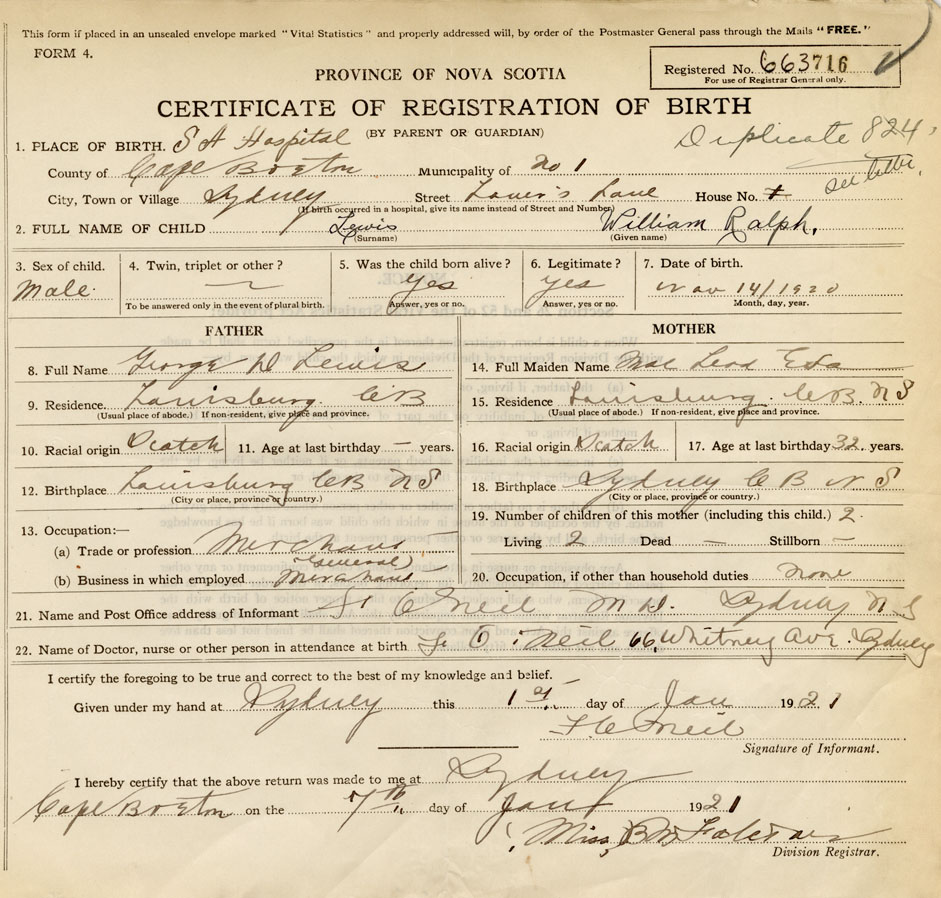 This form if placed in an unsealed envelope marked "Vital Statistics" and properly addressed will, by order of the Postmaster General pass through the Mails "FREE."
FORM 4.
Registered No. 663716
For use of Registrar General only.
PROVINCE OF NOVA SCOTIA
CERTIFICATE OF REGISTRATION OF BIRTH
(BY PARENT OR GUARDIAN)
Duplicate 824
1. PLACE OF BIRTH. S A Hospital
County of Cape Breton Municipality of No 1
see letter
City, Town or Village Sydney Street Lover's Lane House No.
(If birth occurred in a hospital, give its name instead of Street and Number)
2. FULL NAME OF CHILD Lewis William Ralph.
(Surname) (Given name)
3. Sex of child. 4. Twin, triplet or other? 5. Was the child born alive? 6. Legitimate? 7. Date of birth.
Male. — Yes Yes Nov 14/1920
To be answered only in the event of plural birth. Answer, yes or no. Answer, yes or no. Month, day, year.
FATHER MOTHER
8. Full Name George D Lewis 14. Full Maiden Name Mac Leod
9. Residence Louisburg CB 15. Residence Louisburg. C.B. N S
(Usual place of abode.) If non-resident, give place and province. (Usual place of abode.) If non-resident, give place and province.
10. Racial origin Scotch 11. Age at last birthday — years. 16. Racial origin Scotch 17. Age at last birthday 32 years.
12. Birthplace Louisburg CB N S 18. Birthplace Sydney C B N S
(City or place, province or country.) (City or place, province or country.)
13. Occupation:— 19. Number of children of this mother (including this child.) 2.
(a) Trade or profession Merchant Living 2 Dead — Stillborn —
(b) Business in which employed General Merchant 20. Occupation, if other than household duties none
21. Name and Post Office address of Informant O'Neil M D. Sydney N S
22. Name of Doctor, nurse or other person in attendance at birth O'Neil 66, Whitney Ave. Sydney
I certify the foregoing to be true and correct to the best of my knowledge and belief.
Given under my hand at Sydney this 1st day of Jan 1921
O'Neil
Signature of Informant.
I hereby certify that the above return was made to me at Sydney
Cape Breton on the 7th day of Jany 1921
Miss B M
Division Registrar.